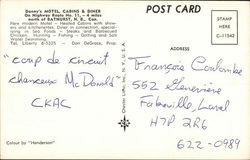 Danny's MOTEL, CABINS & DINER
On Highway Route No. 11, - 4 miles
north of BATHURST, N. B., Can.
New modern Motel - Heated Cabins with
showers and kitchenettes. Diner in connection, specializing
in Sea Foods - Steaks and Barbecued
Chicken. Hunting - Fishing - Golfing and Salt
Water Swimming.
Tel. Liberty 6-3325 - Don DeGrace, Prop.
"coup de circuit
chanceux McDonald
CKAC
Colour by "Henderson"
POST CARD
STAMP
HERE
C-11542
François Coulombe
552 Geneviève
Fabreville, Laval
H7P 2R6
622-0989